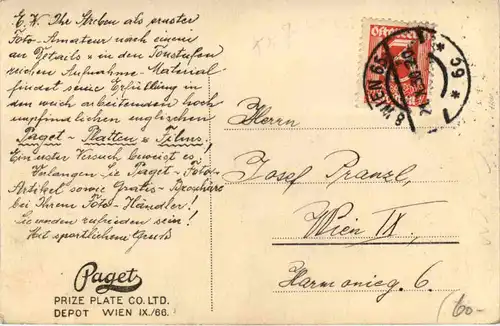 E. W. Ihr Streben als ernster
Foto-Amateur nach einem
an Details u. in den Tonstufen
reichen Aufnahme-Material
findet seine Erfüllung in
den weich arbeitenden hoch
empfindlichen englischen
Paget-Platten u. Films!
Ein erster Versuch beweist es!
Verlangen Sie Paget-Foto-
Artikel sowie Gratis-Broschüre
bei Ihrem Foto-Händler!
Sie werden zufrieden sein!
Mit sportlichem Gruß
Paget
PRIZE PLATE CO. LTD.
DEPOT WIEN IX./66.
Österreich
8 WIEN 66
Herrn
Josef Pranzl,
Wien IX,
Harmonieg. 6.
60-